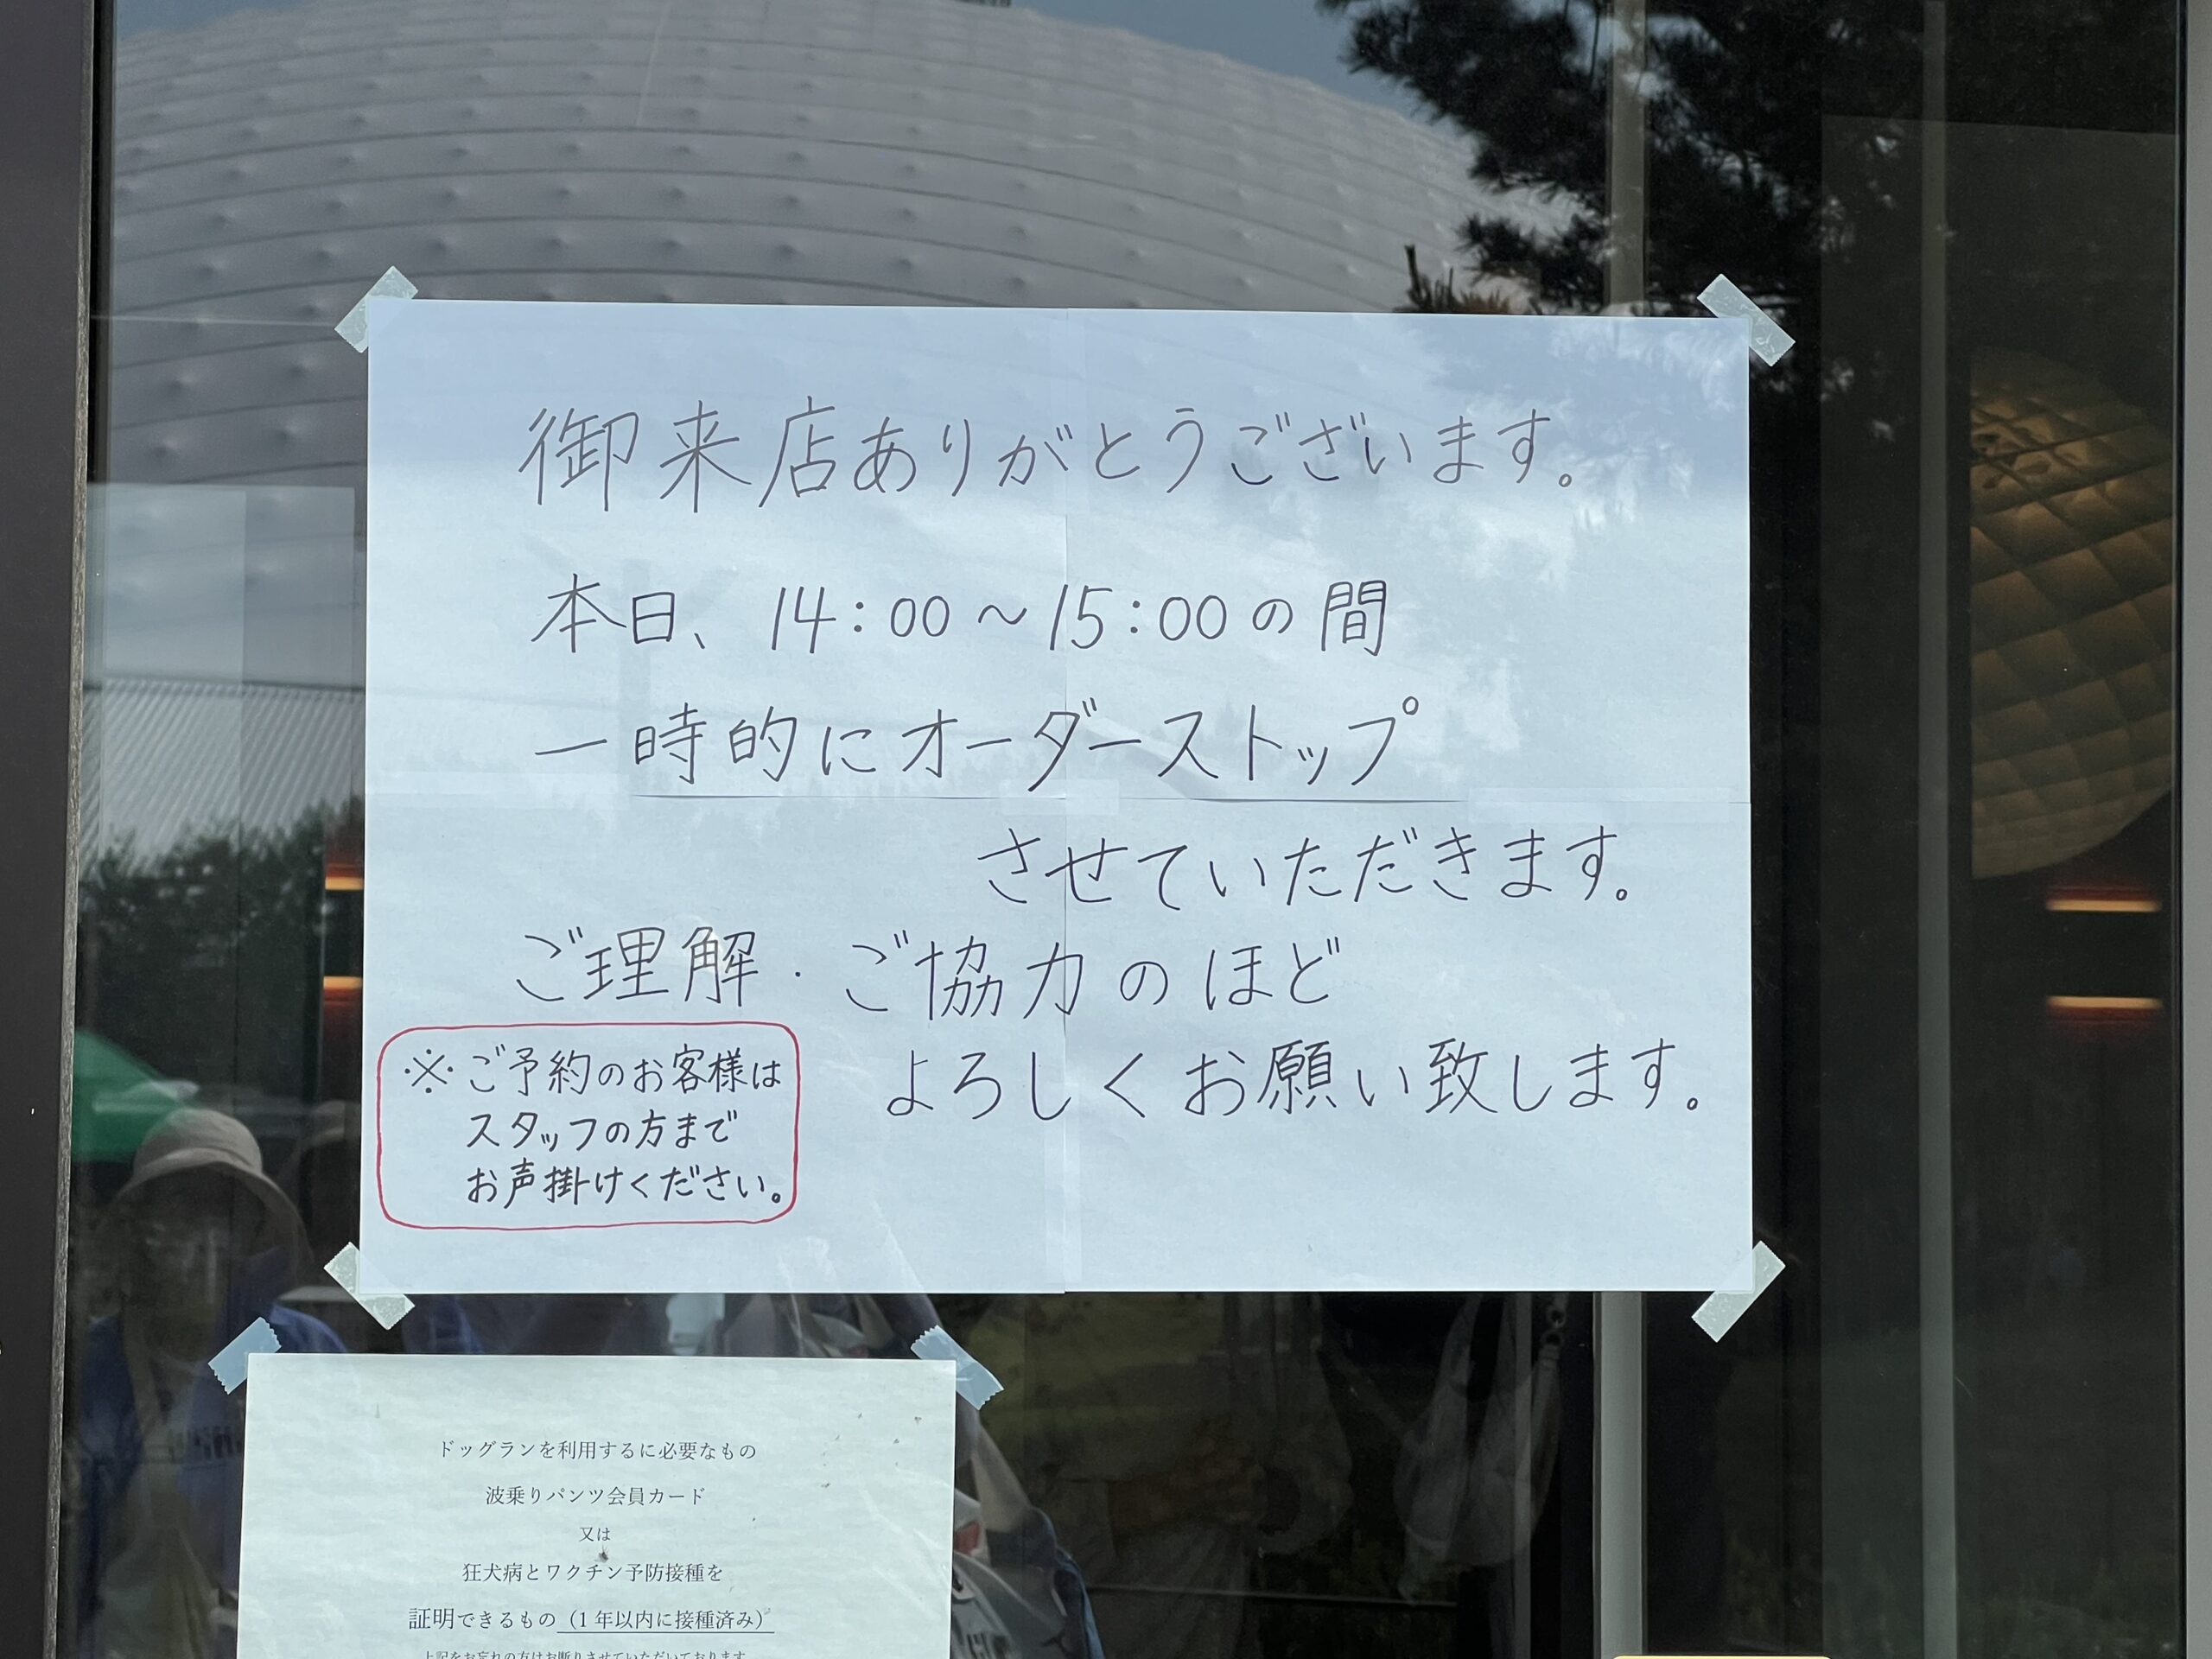 御来店ありがとうございます。
本日、14:00〜15:00の間
一時的にオーダーストップ
させていただきます。
ご理解・ご協力のほど
よろしくお願い致します。
※ご予約のお客様は
スタッフの方まで
お声掛けください。
ドッグランを利用するに必要なもの
波乗りパンツ会員カード
又は
狂犬病とワクチン予防接種を
証明できるもの（1年以内に接種済み）
上記をお忘れの方はお断りさせていただいております